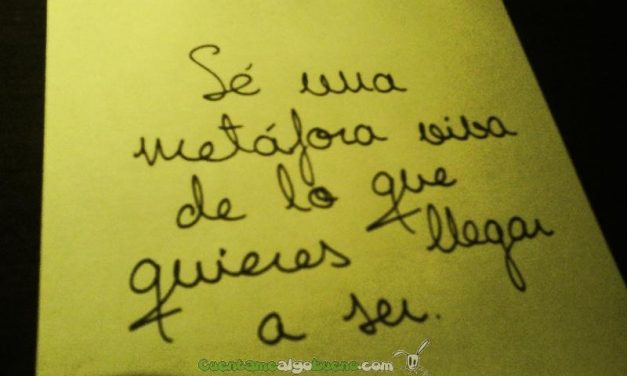 Sé una
metáfora viva
de lo que
quieres llegar
a ser.
Cuentamealgobueno.com